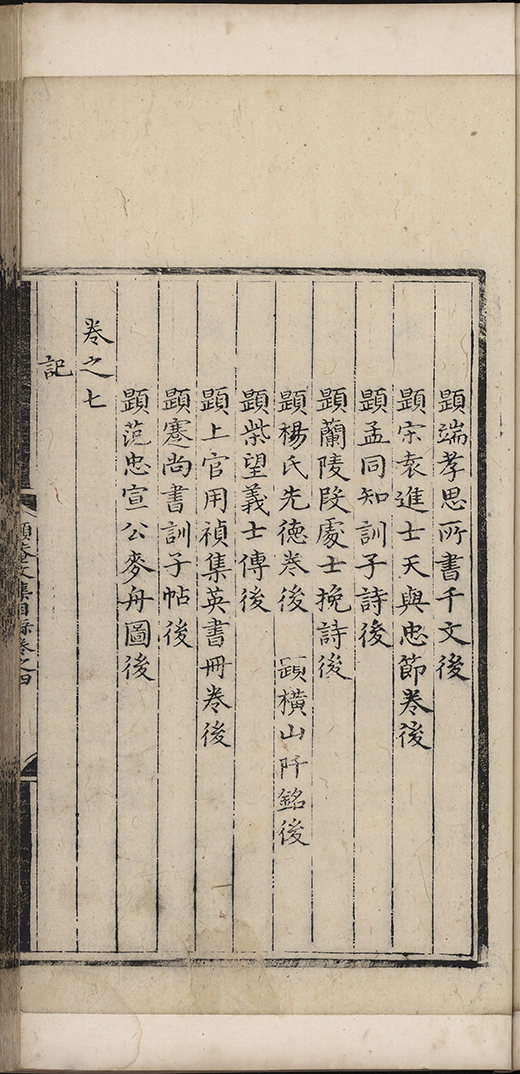 題端孝思所書千文後
題宗袁進士天與忠節卷後
題孟同知訓子詩後
題蘭陵段處士挽詩後
題楊氏先德卷後　題橫山阡銘後
題柴望義士傳後
題上官用禎集英書冊卷後
題蹇尚書訓子帖後
題范忠宣公麥舟圖後
卷之七
記
頤菴文集目录卷之四